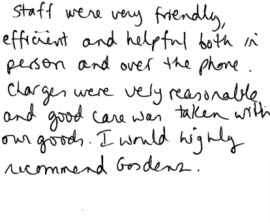 Staff were very friendly,
efficient and helpful both in
person and over the phone.
Charges were very reasonable
and good care was taken with
our goods. I would highly
recommend Gosdens.